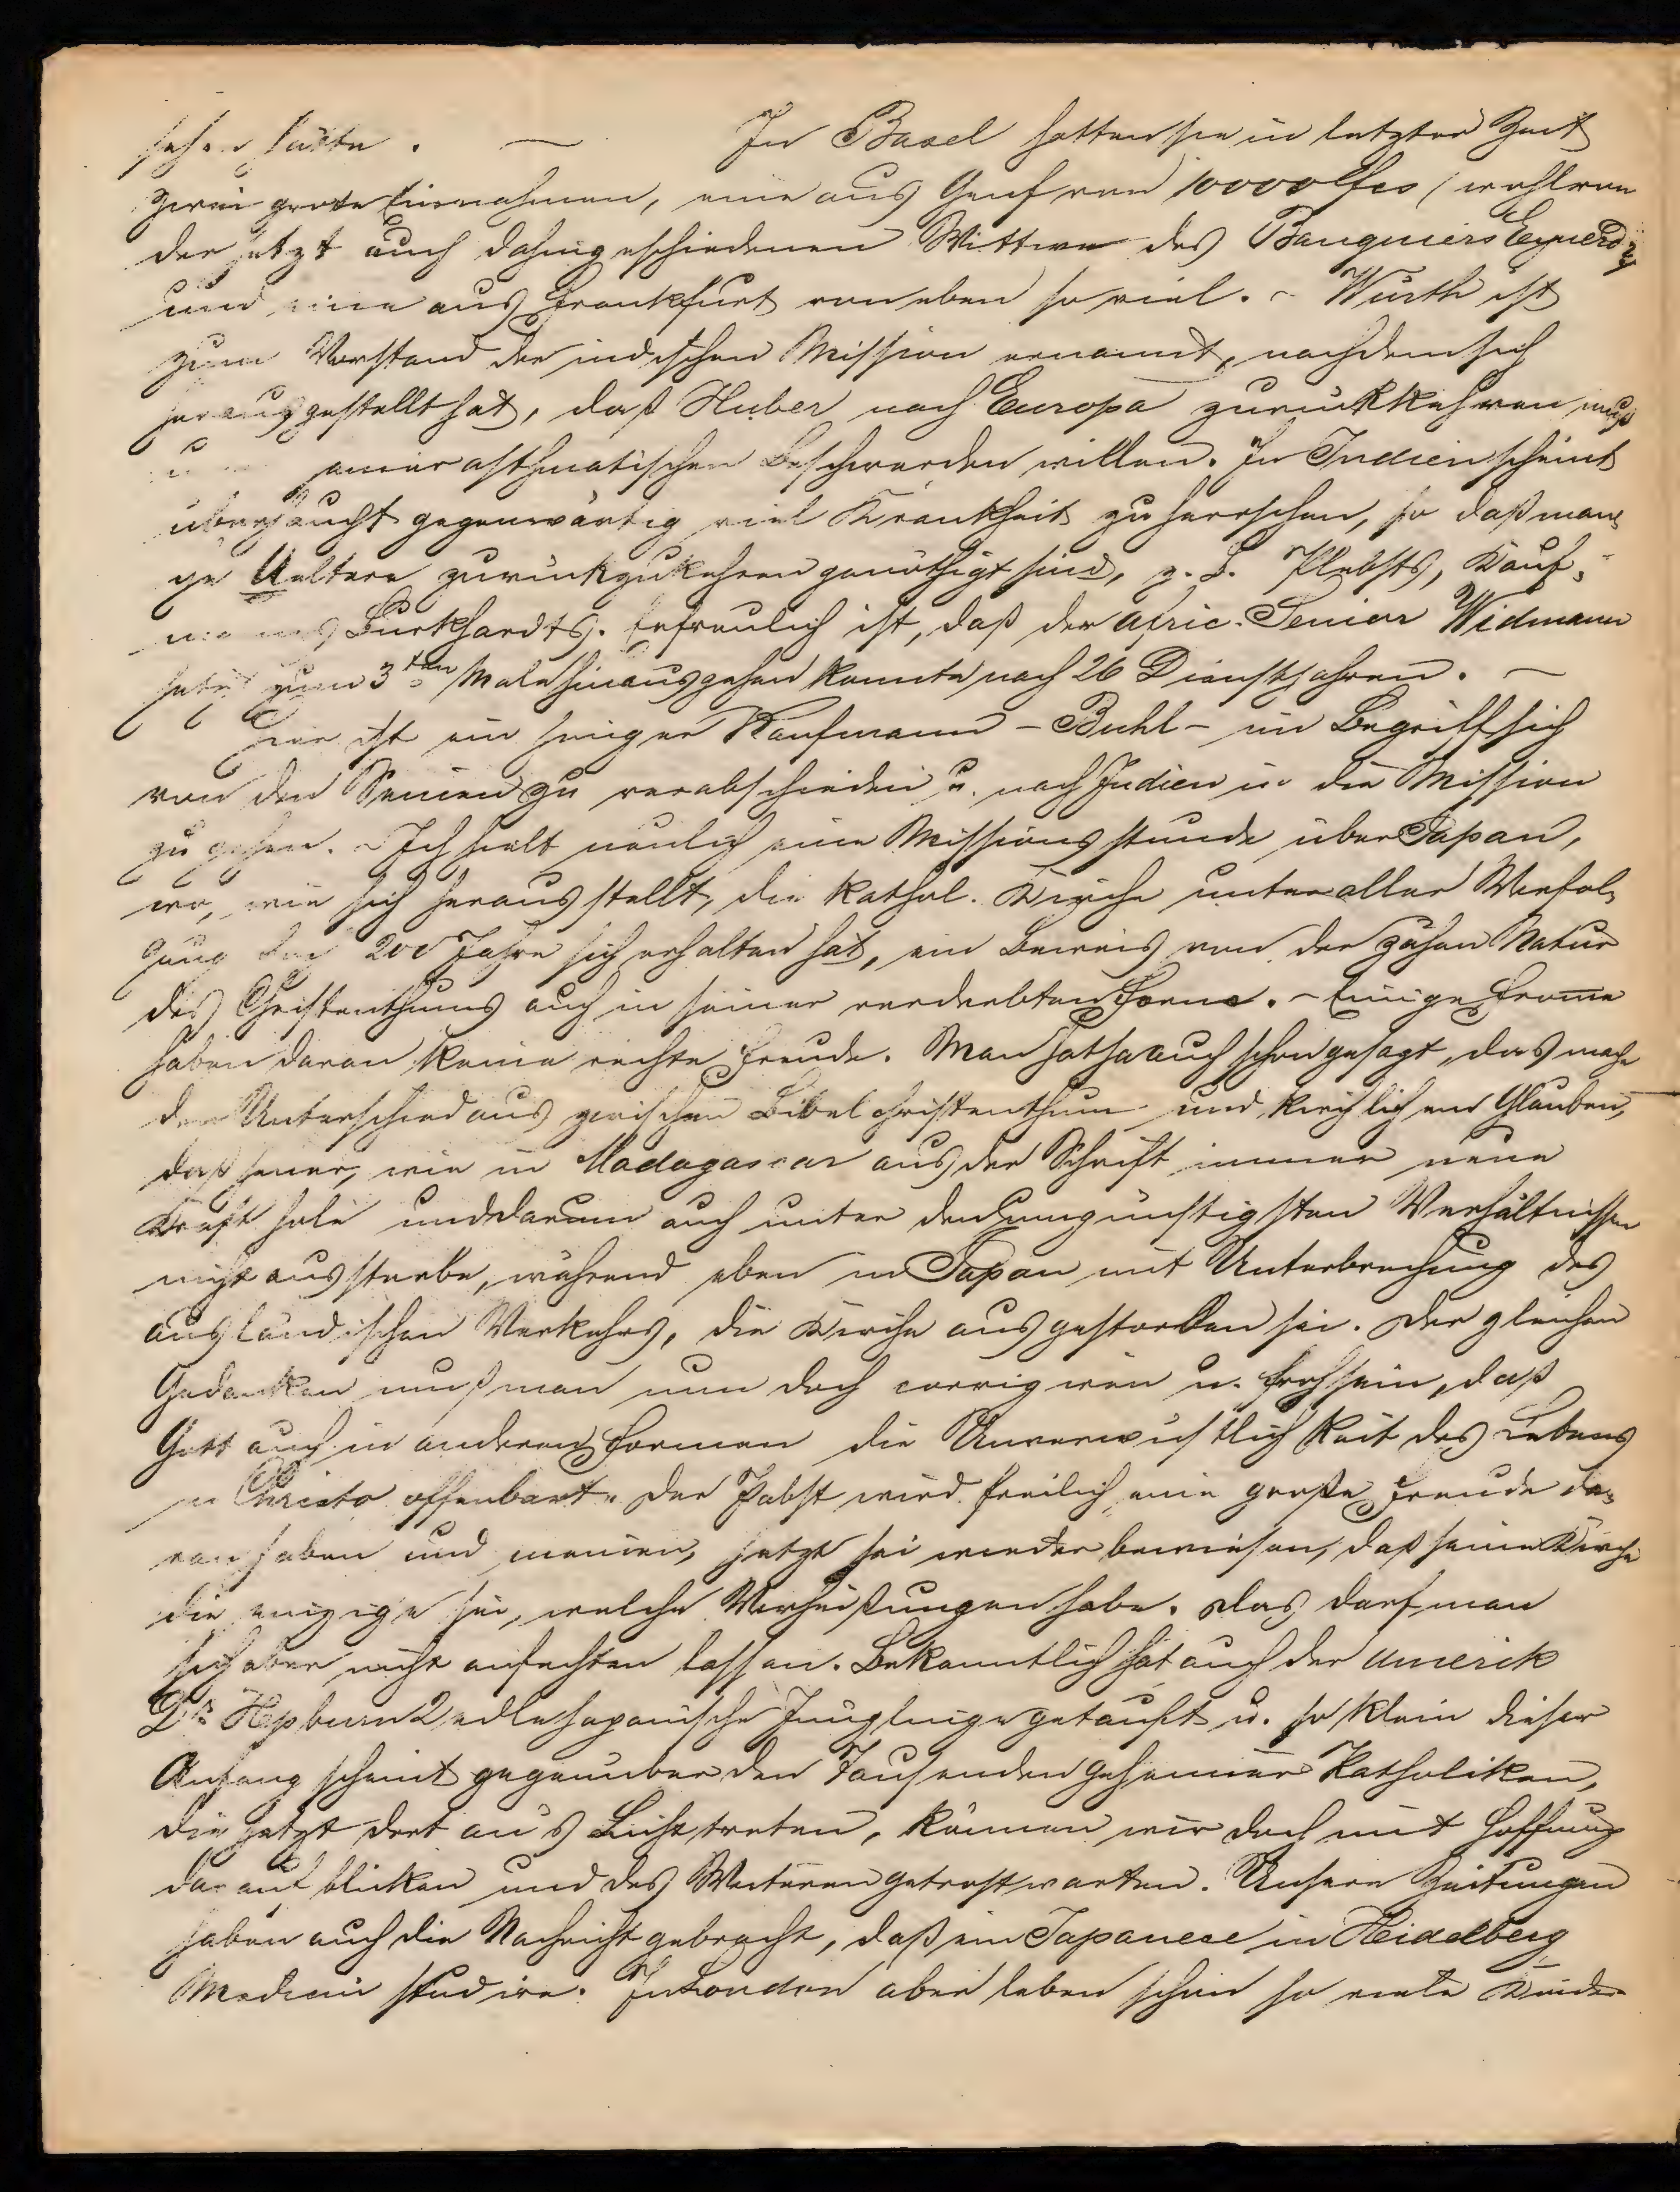 sehen hätte. — In Basel hatten sie in letzter Zeit
zwei große Einnahmen, eine aus Genf von 10000 fcs (wohl von
der jetzt auch dahingeschiedenen Wittwe des Banquiers Eynerd)
und eine aus Frankfurt von eben so viel. - Würth ist
zum Vorstand der indischen Mission ernannt, nachdem sich
herausgestellt hat, daß Huber nach Europa zurückkehren muß
seiner asthmatischen Beschwerden willen. In Indien scheint
überhaupt gegenwärtig viel Krankheit zu herrschen, so daß man-
ge Aeltere zurückzukehren genöthigt sind, z. B. Plebsts, Kauf-
manns Burkhardts. Erfreulich ist, daß der afric. Senior Widmann
jetzt zum 3ten Male hinausgehen konnte nach 26 Dienstjahren. —
Hier ist ein junger Kaufmann - Buhl - im Begriff sich
von den Seinen zu verabschieden u. nach Indien in die Mission
zu gehen. - Ich hielt neulich eine Missionsstunde über Japan,
wo, wie sich herausstellt, die kathol. Kirche unter aller Verfol-
gung 200 Jahre sich erhalten hat, ein Beweis von der zähen Natur
des Christenthums auch in seiner verderbten Form. - Einige Frome
haben daran keine rechte Freude. Man hat ja auch schon gesagt, das mache
den Unterschied aus zwischen Bibelchristenthum und kirchlichem Glauben,
daß jener, wie in Madagascar aus der Schrift immer neue
Kraft hole und darum auch unter den ungünstigsten Verhältnissen
nicht aussterbe, während eben in Japan mit Unterbrechung des
ausländischen Verkehrs, die Kirche ausgestorben sei. Dergleichen
Gedanken muß man nun doch corrigiren u. froh sein, daß
Gott auch in anderen Formen die Unverwüstlichkeit des Lebens
in Christo offenbart. Der Pabst wird freilich eine große Freude da-
ran haben und meinen, jetzt sei wieder bewiesen, daß seine Kirche
die einzige sei, welche Verheißungen habe. Das darf man
sich aber nicht anfechten lassen. Bekanntlich hat auch der Amerik
Dr. Hepburn 2 edle japanische Jünglinge getauft u. so klein dieser
Anfang scheint gegenüber den Tausenden geheimer Katholiken,
die jetzt dort an's Licht treten, können wir doch mit Hoffnung
darauf blicken und des Weiteren getrost warten. Unsere Zeitungen
haben auch die Nachricht gebracht, daß ein Japanese in Heidelberg
Medicin studire. In London aber leben schon so viele Kinder